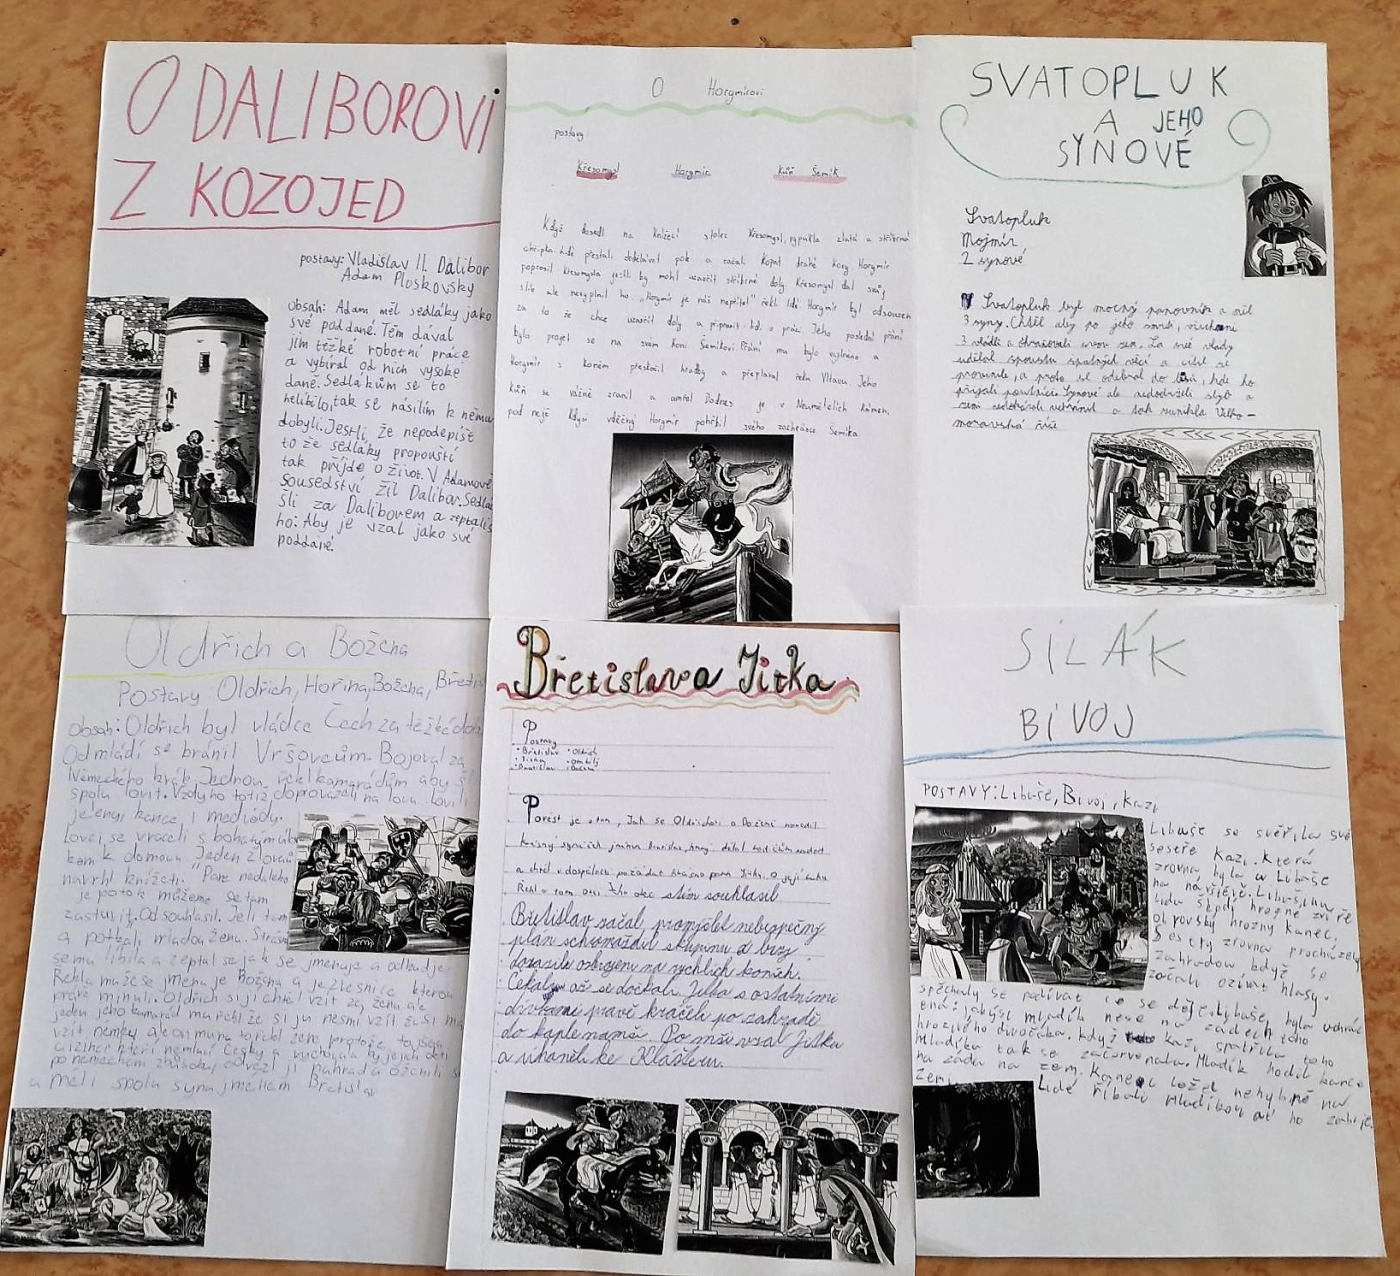 O DALIBOROVI
Z KOZOJED
postavy: Vladislav II. Dalibor
Adam Ploskovský
obsah: Adam měl sedláky jako
své poddané. Těm dával
jim těžké robotní práce
a vybíral od nich vysoké
daně. Sedlákům se to
nelíbilo, tak se násilím k němu
dobyli. Jestli že nepodepíše
to že sedláky propouští
tak přijde o život. V Adamově
sousedství žil Dalibor. Sedláci
šli za Daliborem a zeptali se
ho: Aby je vzal jako své
poddané.
O Horymírovi
postavy
Křesomysl Horymír kůň Šemík
Když dosedl na knížecí stolec Křesomysl, vypukla zlatá a stříbrná
chřipka. Lidé přestali obdělávat pole a začali kopat drahé kovy Horymír
poprosil Křesomysla jestli by mohl uzavřít stříbrné doly Křesomysl dal svůj
slib ale nesplnil ho. „Horymír je náš nepřítel" řekli lidé Horymír byl odsouzen
za to že chce uzavřít doly a připravit lidi o práci Jeho poslední přání
bylo projet se na svém koni Šemíkovi. Přání mu bylo vyplněno a
Horymír s koněm přeskočil hradby a přeplaval řeku Vltavu Jeho
kůň se vážně zranil a umřel Dodnes je v Neumětelích kámen,
pod nejž kdysi vděčný Horymír pohřbil svého zachránce Šemíka.
SVATOPLUK
A JEHO
SYNOVÉ
Svatopluk
Mojmír
2 synové
Svatopluk byl mocný panovník a měl
3 syny. Chtěl aby po jeho smrti, všichni
3 vládli a chraňovali svou zem. Za své vlády
udělal spoustu špatných věcí a cítil se
provinile, a proto se odebral do lesů, kde ho
přijali poustevníci. Synové ale nedodrželi slib a
zem nedokázali ubránit a tak vznikla Velko-
moravská říše
Oldřich a Božena
Postavy Oldřich, Hořina, Božena, Břetis
Obsah: Oldřich byl vládce Čech za těžké dob
Od mládí se bránil Vršovcům. Bojoval za
Německého krále. Jednou řekl kamarádům aby š
spolu lovit. Vždy ho totiž doprovázeli na lovu. Lovili
jeleny i kance, i medvědy.
Lovci se vraceli s bohatým úlov
kem k domovu. Jeden z lovců
navrhl knížeti: "Pane nedaleko
je potok můžeme se tam
zastavit. Odsouhlasil. Jeli tam
a potkali mladou ženu. Strašně
se mu líbila a zeptal se jak se jmenuje a odkud je.
Řekla mu že se jmenuje Božena a je z vesnice kterou
právě minuli. Oldřich si ji chtěl vzít za ženu ale
jeden jeho kamarád mu řekl že si ju nesmí vzít že si má
vzít němky
po německém způsobu, odvezl ji na hrad a oženili se
a měli spolu syna jménem Břetislav
Břetislav a Jitka
Postavy
• Břetislav • Oldřich
• Jitka
• Božena
Pověst je o tom, jak se Oldřichovi a Boženě narodil
krásný synáček jménem Břetislav, který dělal rodičům radost
Řekl o tom otci. Jeho otec s tím souhlasil
Břetislav začal promýšlet nebezpečný
plán schromáždil skupinu a brzy
dorazili ozbrojeni na rychlích koních.
Čekali až se dočkali. Jitka s ostatními
dívkami právě kráčeli po zahradě
do kaple na mši. Po mši vzal Jitku
a uháněli ke Klášteru.
SILÁK
BIVOJ
POSTAVY: Libuše, Bivoj, Kazi
Libuše se svěřila své
sestře Kazi, která
zrovna byla u Libuše
na návštěvě. Libušinu
lidu škodí hrozné zvíře
obrovský hrozný kanec.
Sestry zrovna procházely
zahradou když se
začali ozývat hlasy.
spěchaly se podívat co se děje. Libuše, byla udivená
ená: jakýsi mladík nese na zádech toho
hrozivého divočáka. když Kazi spatřila toho
mladíka tak se začervenala. Mladík hodil kance
na záda na zem. Kanec ležel nehybně na
zemi. Lidé říkali Mladíkovi ať ho zabije.